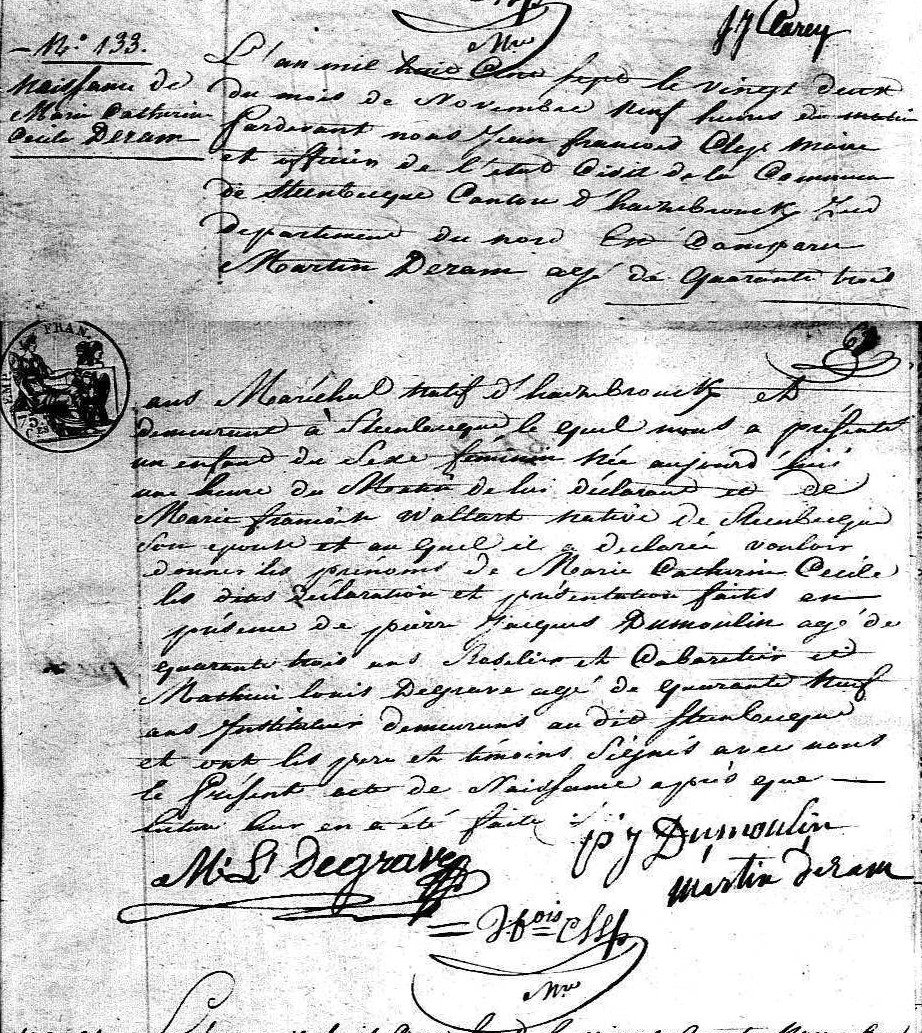 Mre
J J Clarey
N.° 133.
Naissance de
Marie Catherine
Cecile Deram
L'an mil huit Cent sept le vingt deux
du mois de Novembre neuf heures du matin
Pardevant nous Jean francois Clep Maire
et officier de l'etat Civil de la Commune
de Steenbecque Canton d'hazebrouck
departement du nord Est Comparu
Martin Deram agé de Quarante trois
EMP. FRAN.
75 CES
63
ans Maréchal natif d'hazebrouck et
demeurant à Steenbecque le quel nous a présenté
un enfant du Sexe féminin née aujourd'hui
une heure du Matin de lui déclarant et de
Marie francoise Wallart native de Steenbecque
son epouse et au quel il a declaree vouloir
donner les prenoms de Marie Catherine Cecile
les dites Déclaration et présentation faites en
présence de pierre Jacques Dumoulin agé de
quarante trois ans et Cabaretier et
Mathieu louis Degrave agé de quarante neuf
ans Instituteur demeurans audit Steenbecque
et ont les pere et témoins Signés avec nous
le Présent acte de Naissance après que
lecture leur en a été faite
p J Dumoulin
M. L. Degrave
martin deram
J. fois Clep
Mre